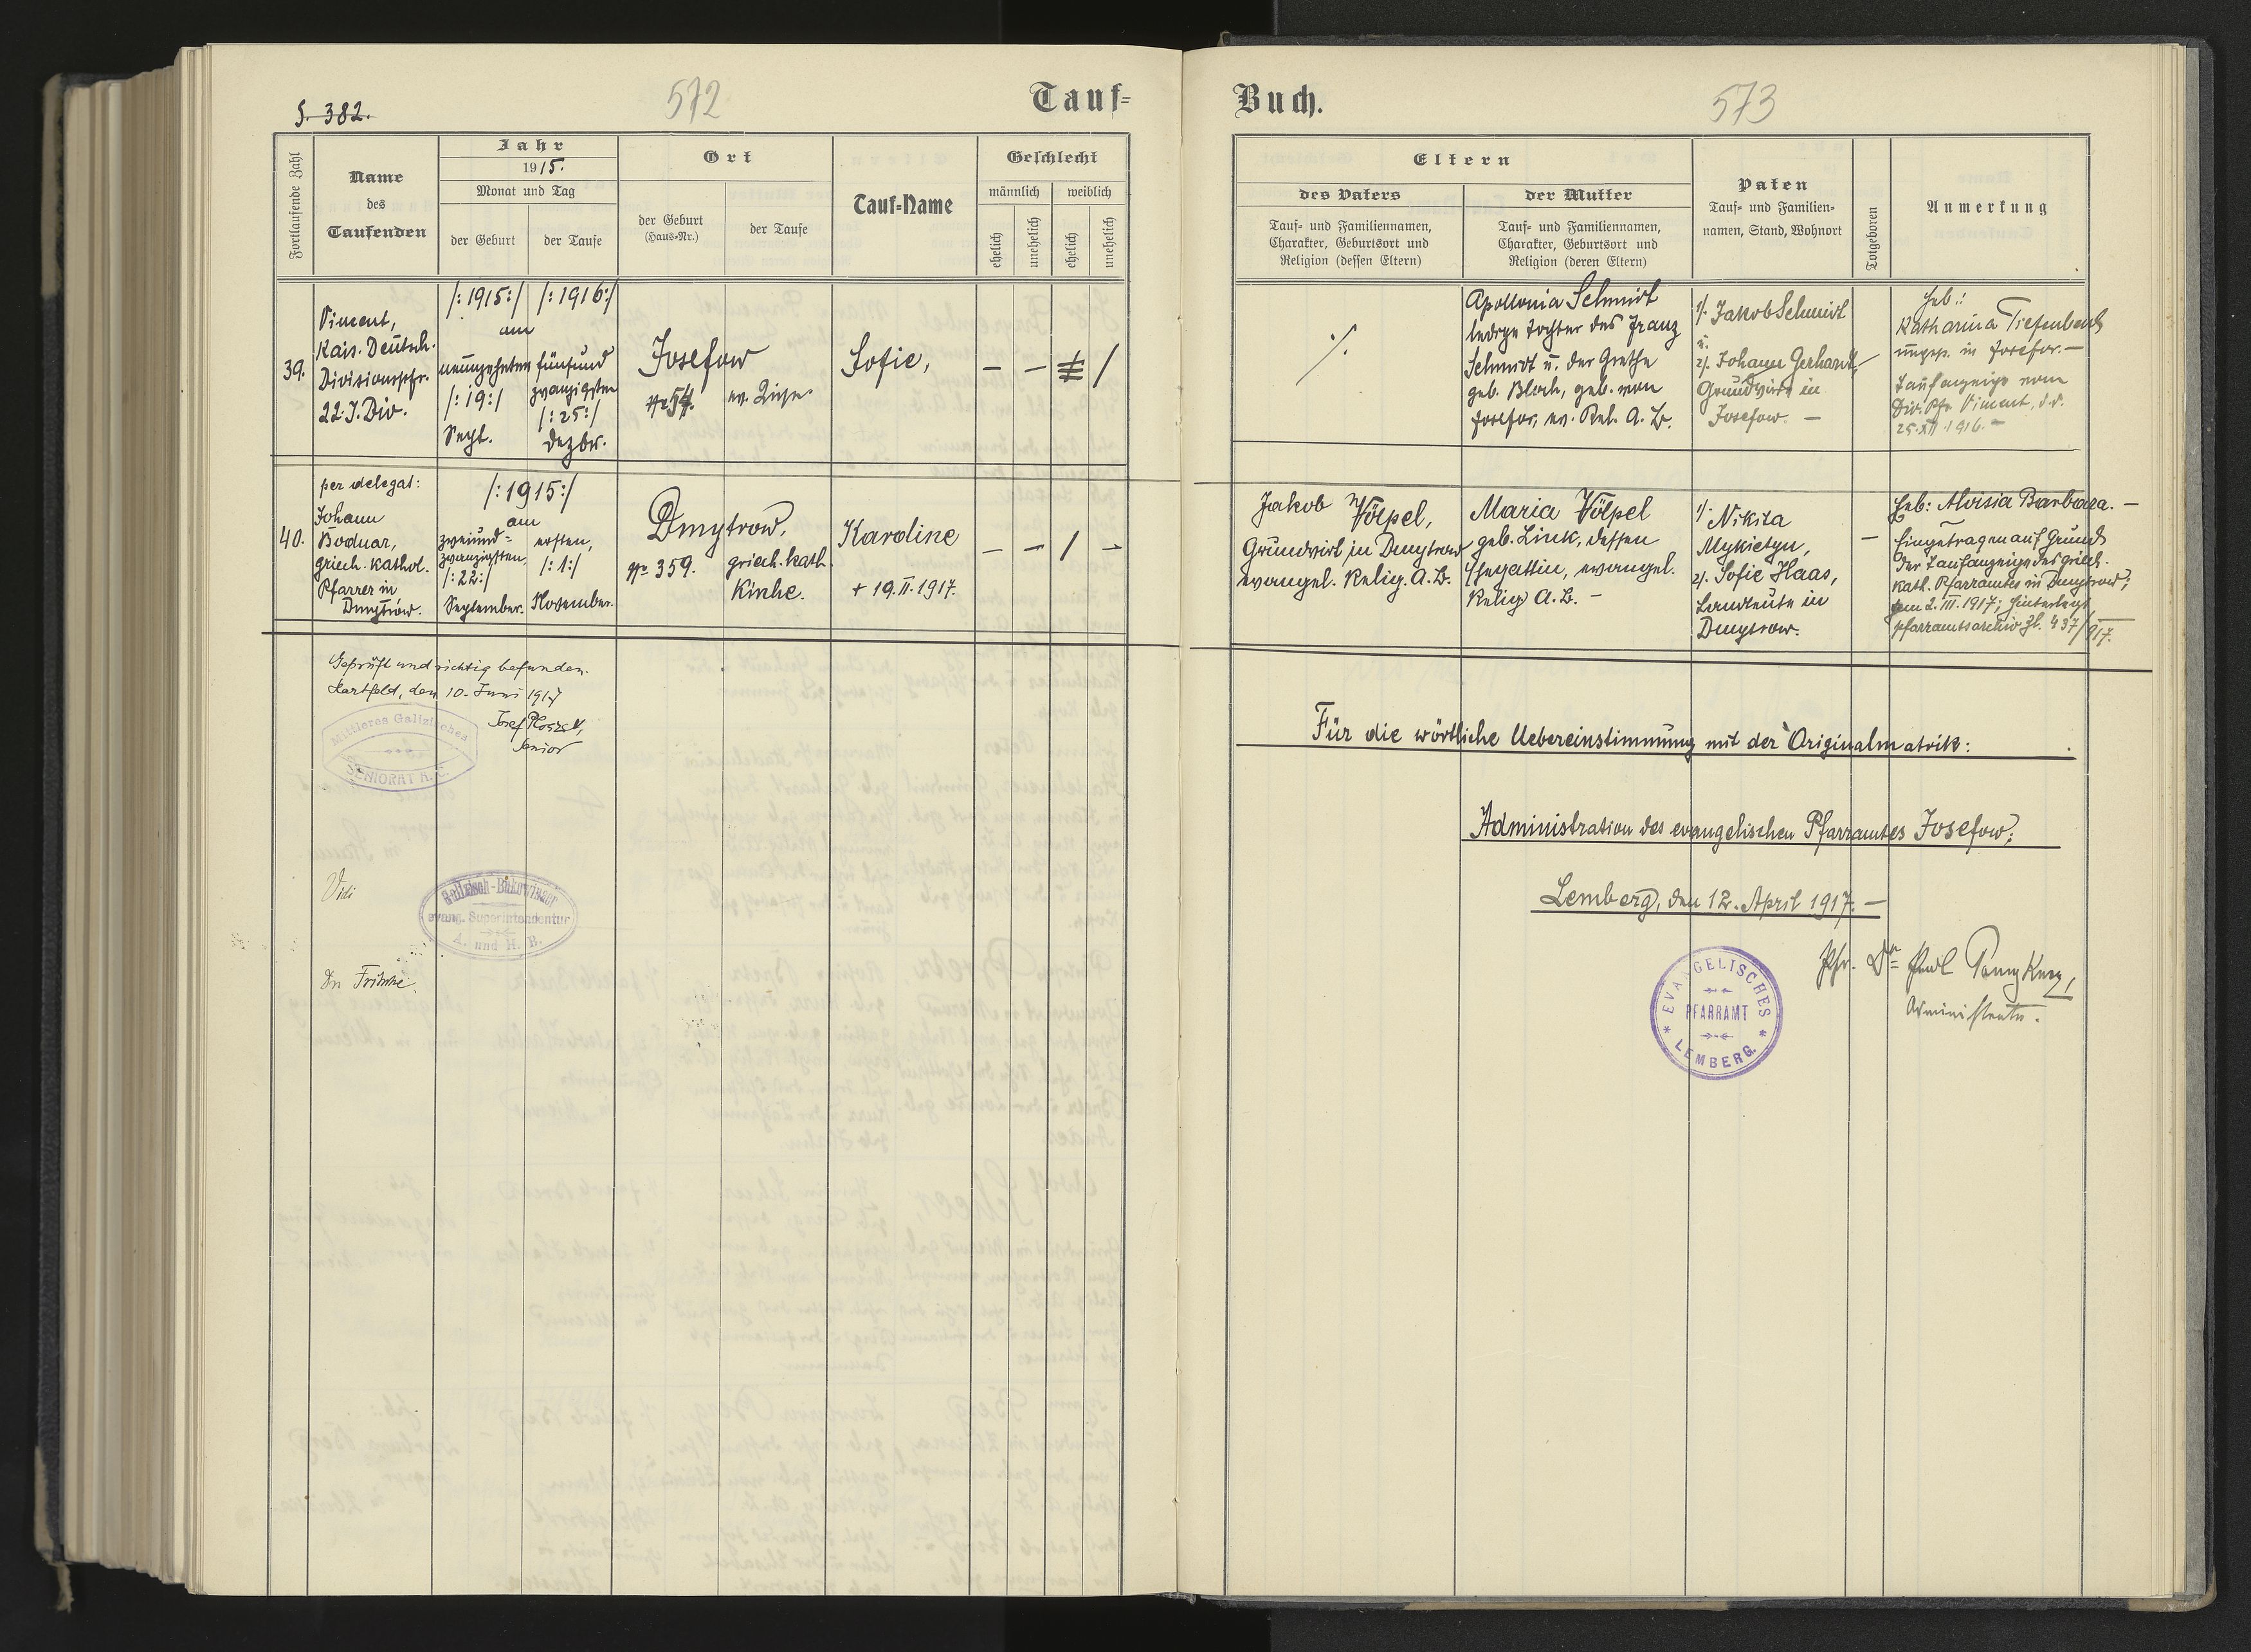 S. 382.
572
Tauf-
Fortlaufende Zahl
Name
des
Taufenden
Jahr
1915.
Monat und Tag
der Geburt
der Taufe
Ort
der Geburt
(Haus-Nr.)
der Taufe
Tauf-Name
Geschlecht
männlich
weiblich
ehelich
unehelich
ehelich
unehelich
39.
Piment,
Kais. Deutsch.
Divisionspfr.
22. J. Div.
/:1915:/ /:1916:/
am
neunzehnten
/:19:/
Sept.
fünfund
zwanzigsten
/:25:/
Dezbr.
Josefow
Nr 54.
ev.
Sofie,
— — /
40.
per delegat:
Johann
Bodnar,
griech. kathol.
Pfarrer in
Dmytrów.
/:1915:/
am
zweiund-
zwanzigsten,
/:22:/
September.
ersten,
/:1:/
November.
Dmytrow,
Nr 359.
griech. kath.
Kirche.
Karoline
+ 19. II. 1917.
— — / —
Geprüft und richtig befunden.
Hartfeld, den 10. Juni 1917
Josef
Senior
Mittleres Galizisches
SENIORAT A. C.
Vidi
Galizisch-Bukowinaer
evang. Superintendentur
A. und H. B.
Dr Fritsche.
Buch.
573
Eltern
des Vaters
Tauf- und Familiennamen,
Charakter, Geburtsort und
Religion (dessen Eltern)
der Mutter
Tauf- und Familiennamen,
Charakter, Geburtsort und
Religion (deren Eltern)
Paten
Tauf- und Familien-
namen, Stand, Wohnort
Totgeboren
Anmerkung
·/.
Apollonia Schmidt
ledige Tochter des Franz
Schmidt u. der Grethe
geb. Bloch, geb. von
Josefow, ev. Rel. A. B.
1/. Jakob Schmidt
u.
2/. Johann Gerhardt,
Grundwirt in
Josefow. —
Heb.:
Katharina Tiefenbach
ungepr. in Josefow. —
Taufanzeige vom
Div. Pfr. Piment, d. d.
25. XII. 1916. —
Jakob Völpel,
Grundwirt in Dmytrow
evangel. Relig. A. B.
Maria Völpel
geb. Link, dessen
Ehegattin, evangel.
Relig. A. B. —
1/. Nikita
Mykietyn,
2/. Sofie Haas,
Landleute in
Dmytrow.
—
Heb: Aloisia Barbara. —
Eingetragen auf Grund
der Taufanzeige des griech.
kath. Pfarramtes in Dmytrow,
vom 2. III. 1917; hinterlegt
Pfarramtsarchiv Zl. 437/917.
Für die wörtliche Uebereinstimmung mit der Originalmatrik:
Administration des evangelischen Pfarramtes Josefow:
Lemberg, den 12. April 1917. —
Pfr. Dr
Administrator.
EVANGELISCHES
PFARRAMT
LEMBERG.